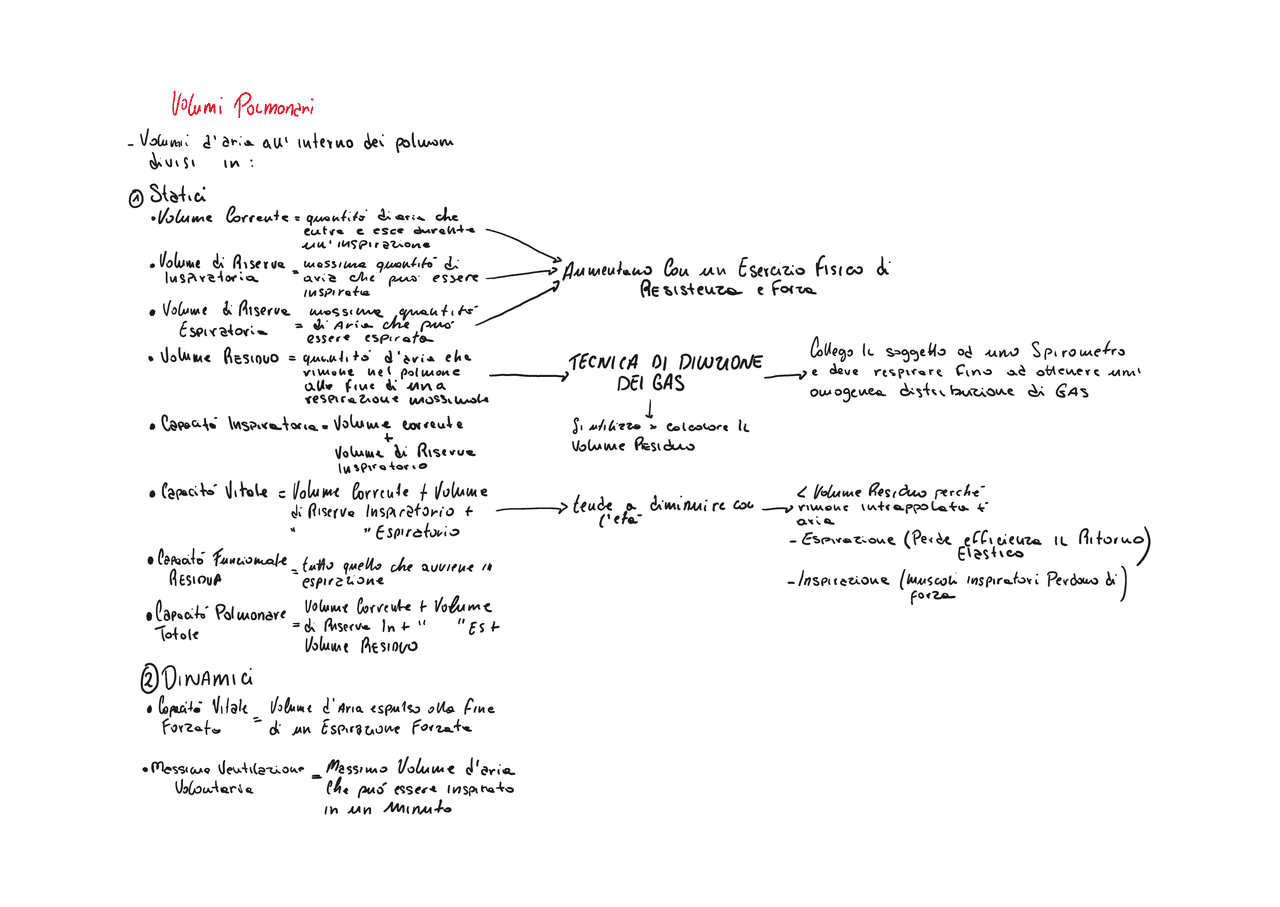 Volumi Polmonari
- Volumi d'aria all'interno dei polmoni
divisi in:
① Statici
• Volume Corrente = quantità di aria che
entra e esce durante
un'inspirazione
• Volume di Riserva = massima quantità di
Inspiratoria aria che può essere
inspirata
• Volume di Riserva massima quantità
Espiratoria = di Aria che può
essere espirata
Aumentano Con un Esercizio Fisico di
Resistenza e Forza
• Volume Residuo = quantità d'aria che
rimane nel polmone
alla fine di una
respirazione massimale
TECNICA DI DILUIZIONE
DEI GAS
Si utilizza x calcolare il
Volume Residuo
Collego il soggetto ad uno Spirometro
e deve respirare fino ad ottenere un'
omogenea distribuzione di GAS
• Capacità Inspiratoria = Volume corrente
+
Volume di Riserva
Inspiratorio
• Capacità Vitale = Volume Corrente + Volume
di Riserva Inspiratorio +
" " Espiratorio
tende a diminuire con
l'età
< Volume Residuo perché
rimane intrappolata +
aria
- Espirazione (Perde efficienza il Ritorno)
Elastico
- Inspirazione (muscoli inspiratori Perdono di)
forza
• Capacità Funzionale = tutto quello che avviene in
Residua espirazione
• Capacità Polmonare Volume Corrente + Volume
Totale = di Riserva In + " " Es +
Volume Residuo
② Dinamici
• Capacità Vitale = Volume d'Aria espulso alla fine
Forzata di un Espirazione Forzata
• Massima Ventilazione = Massimo Volume d'aria
Volontaria Che può essere inspirato
in un minuto